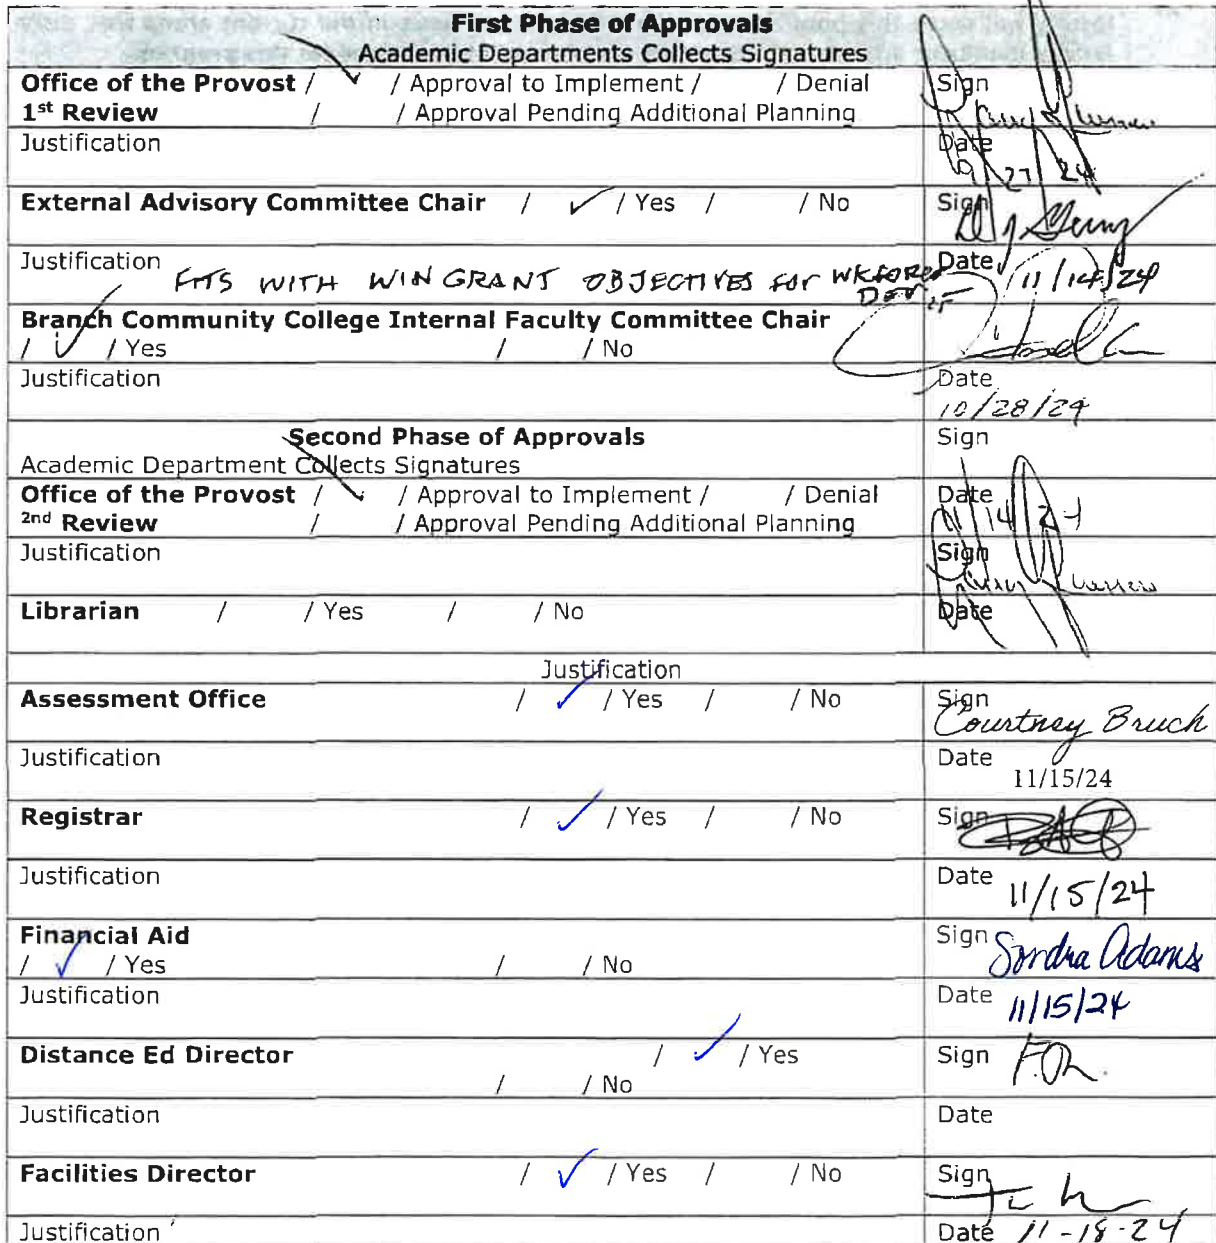 First Phase of Approvals
Academic Departments Collects Signatures
Office of the Provost / ✓ / Approval to Implement / / Denial Sign
1st Review / / Approval Pending Additional Planning
Justification Date
9/27/24
External Advisory Committee Chair / ✓ / Yes / / No Sign
Justification FITS WITH WIN GRANT OBJECTIVES FOR WKFORCE Date 11/14/24
DEV
Branch Community College Internal Faculty Committee Chair
/ ✓ / Yes / / No
Justification Date
10/28/24
Second Phase of Approvals Sign
Academic Department Collects Signatures
Office of the Provost / ✓ / Approval to Implement / / Denial Date
2nd Review / / Approval Pending Additional Planning 11/14/24
Justification Sign
Librarian / / Yes / / No Date
Justification
Assessment Office / ✓ / Yes / / No Sign
Courtney Bruch
Justification Date
11/15/24
Registrar / ✓ / Yes / / No Sign
Justification Date 11/15/24
Financial Aid Sign Sondra Adams
/ ✓ / Yes / / No
Justification Date 11/15/24
Distance Ed Director / ✓ / Yes Sign
/ / No
Justification Date
Facilities Director / ✓ / Yes / / No Sign
Justification Date 11-18-24